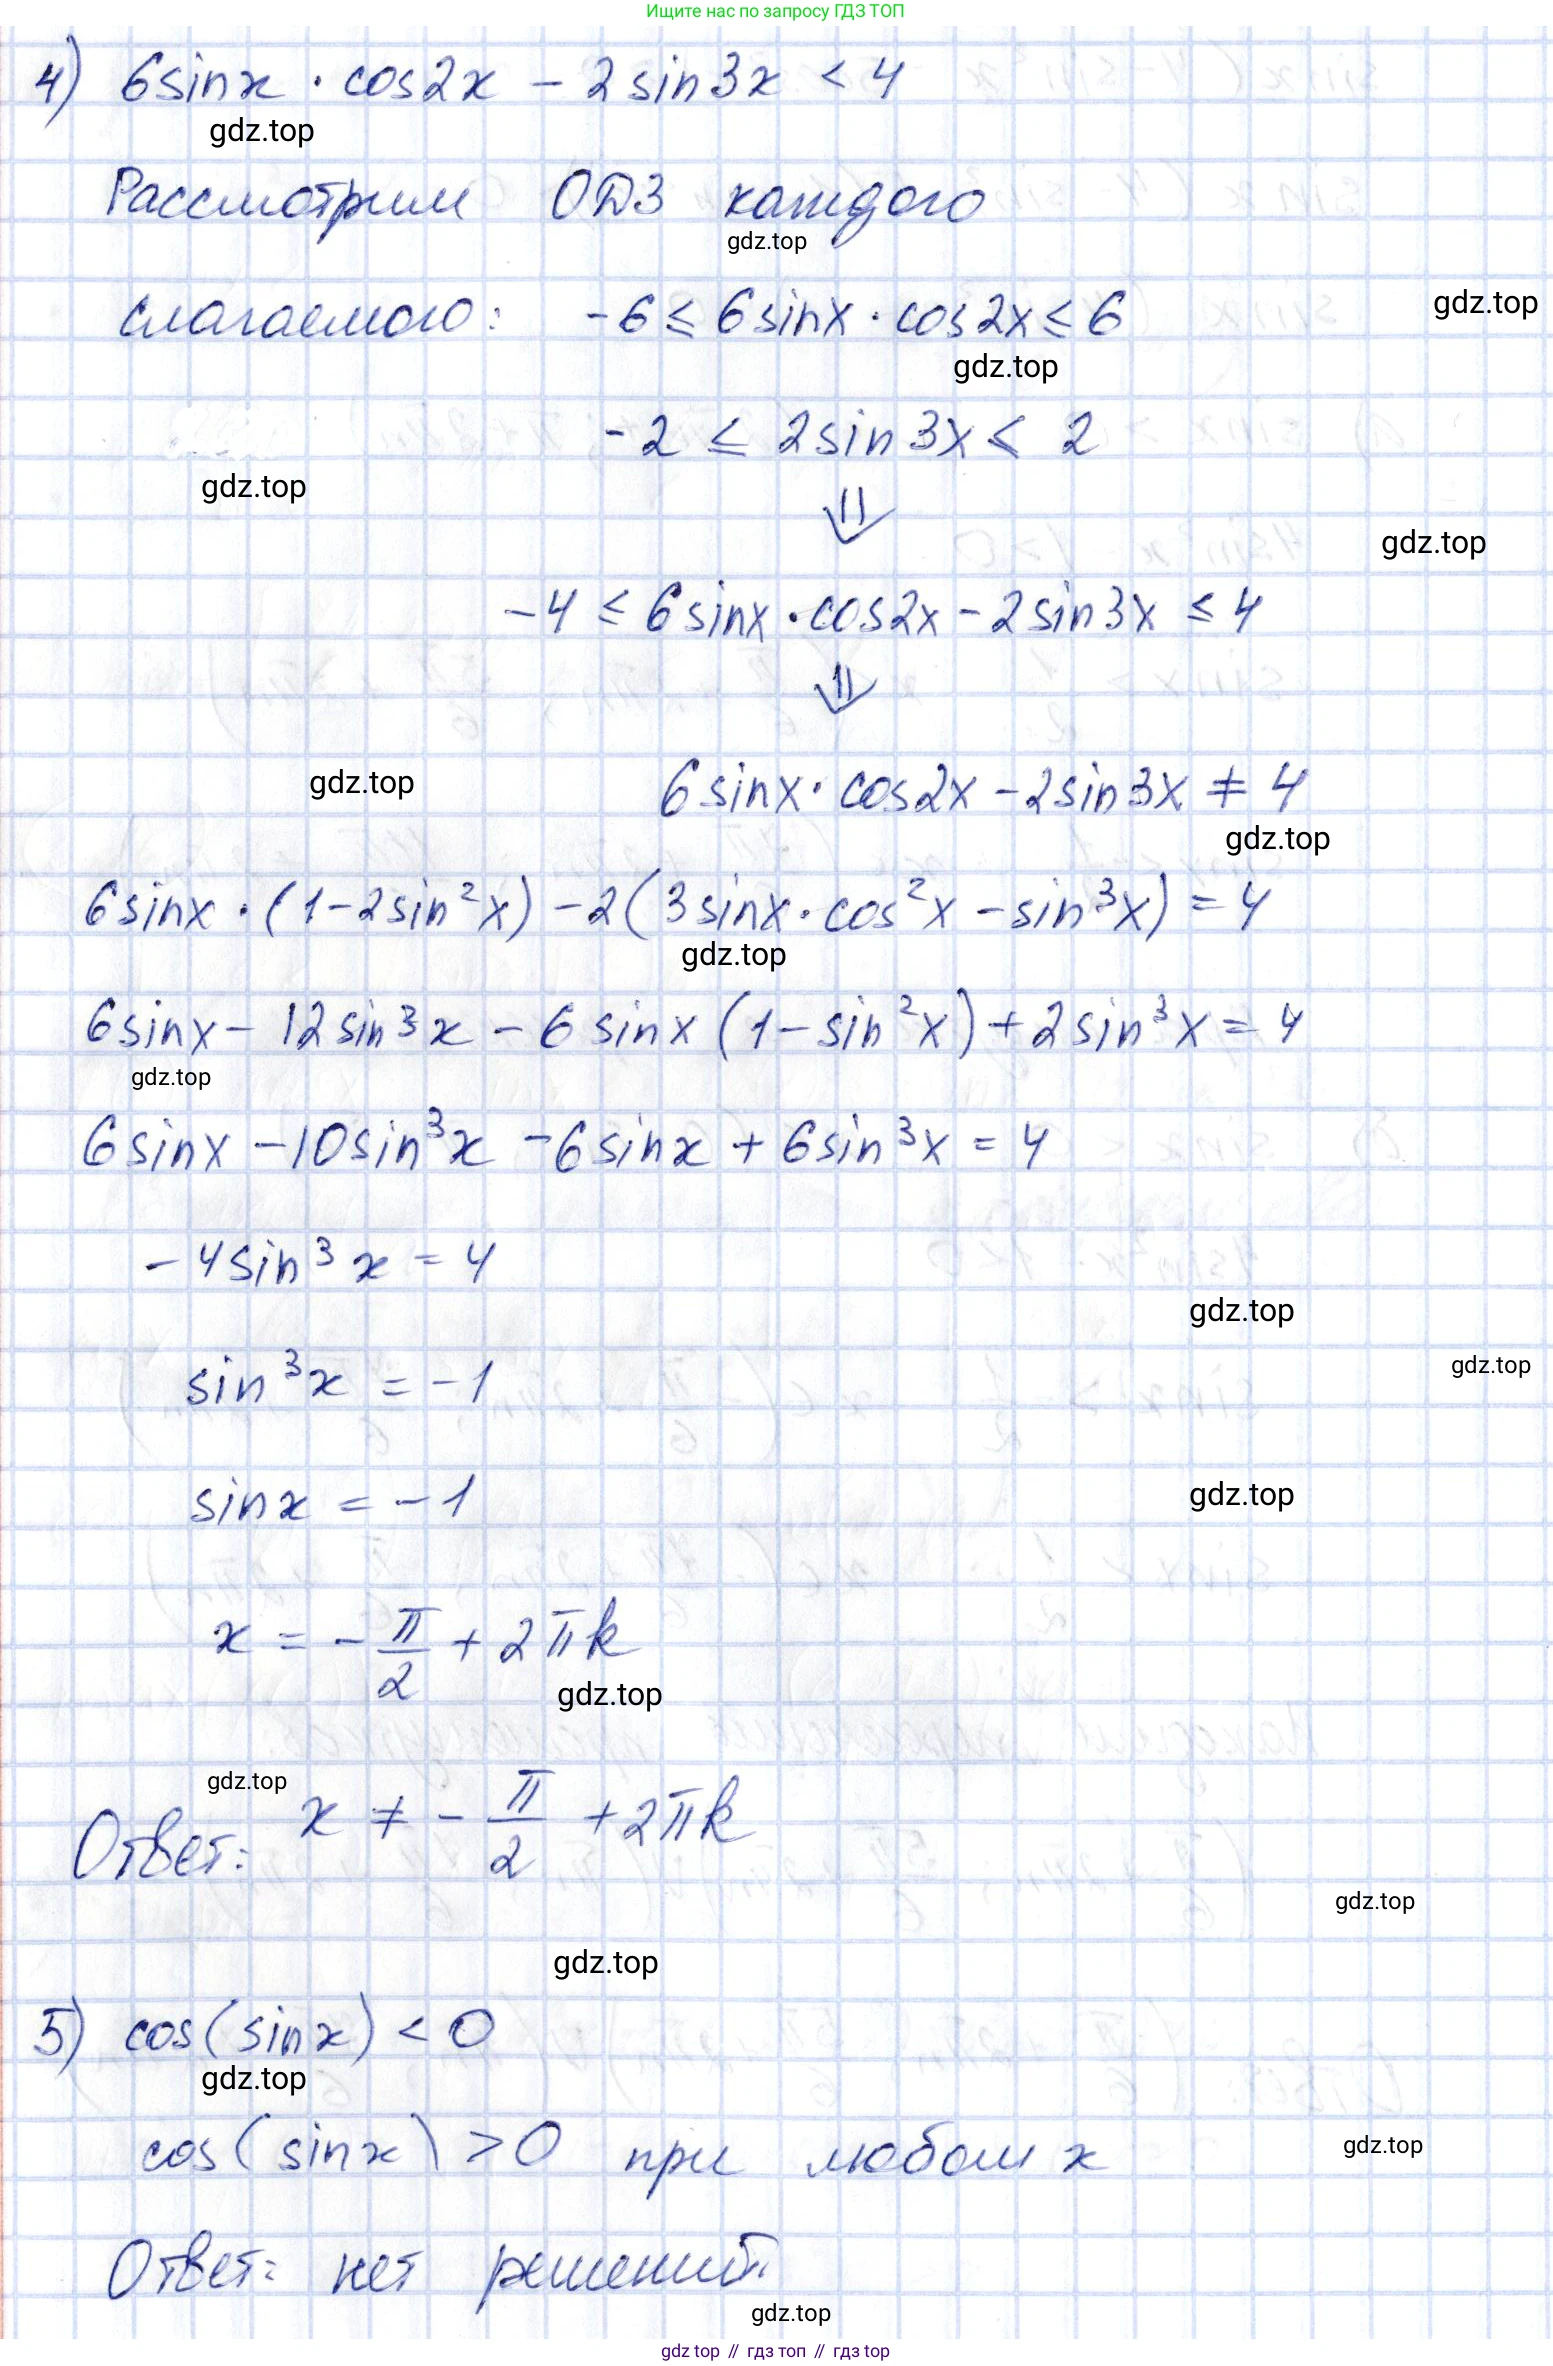 Ищите нас по запросу ГДЗ ТОП
4) 6sinx · cos2x − 2sin3x < 4
gdz.top
Рассмотрим ОДЗ каждого
gdz.top
слагаемого: −6 ≤ 6sinx · cos2x ≤ 6
gdz.top
gdz.top
−2 ≤ 2sin3x ≤ 2
gdz.top
⇓
gdz.top
−4 ≤ 6sinx · cos2x − 2sin3x ≤ 4
⇓
gdz.top
6sinx · cos2x − 2sin3x ≠ 4
gdz.top
6sinx · (1−2sin²x) − 2(3sinx · cos²x − sin³x) = 4
gdz.top
6sinx − 12sin³x − 6sinx(1−sin²x) + 2sin³x = 4
gdz.top
6sinx − 10sin³x − 6sinx + 6sin³x = 4
−4sin³x = 4
gdz.top
gdz.top
sin³x = −1
sinx = −1
gdz.top
x = −π/2 + 2πk
gdz.top
gdz.top
Ответ: x ≠ −π/2 + 2πk
gdz.top
gdz.top
5) cos(sinx) < 0
gdz.top
cos(sinx) > 0 при любом x
gdz.top
Ответ: нет решений.
gdz.top
gdz top // гдз топ // гдз top